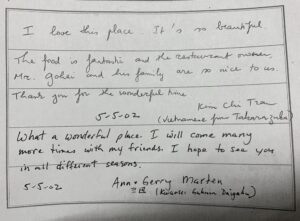 I love this place. It's so beautiful
The food is fantastic and the restaurant owner,
Mr. Gohei and his family are so nice to us.
Thank you for the wonderful time
Kim Chi Tran
5-5-02 (Vietnamese from Takarazuka)
What a wonderful place. I will come many
more times with my friends. I hope to see you
in all different seasons.
5-5-02 Ann & Gerry Marten
(Kwansei Gakuin Daigaku)